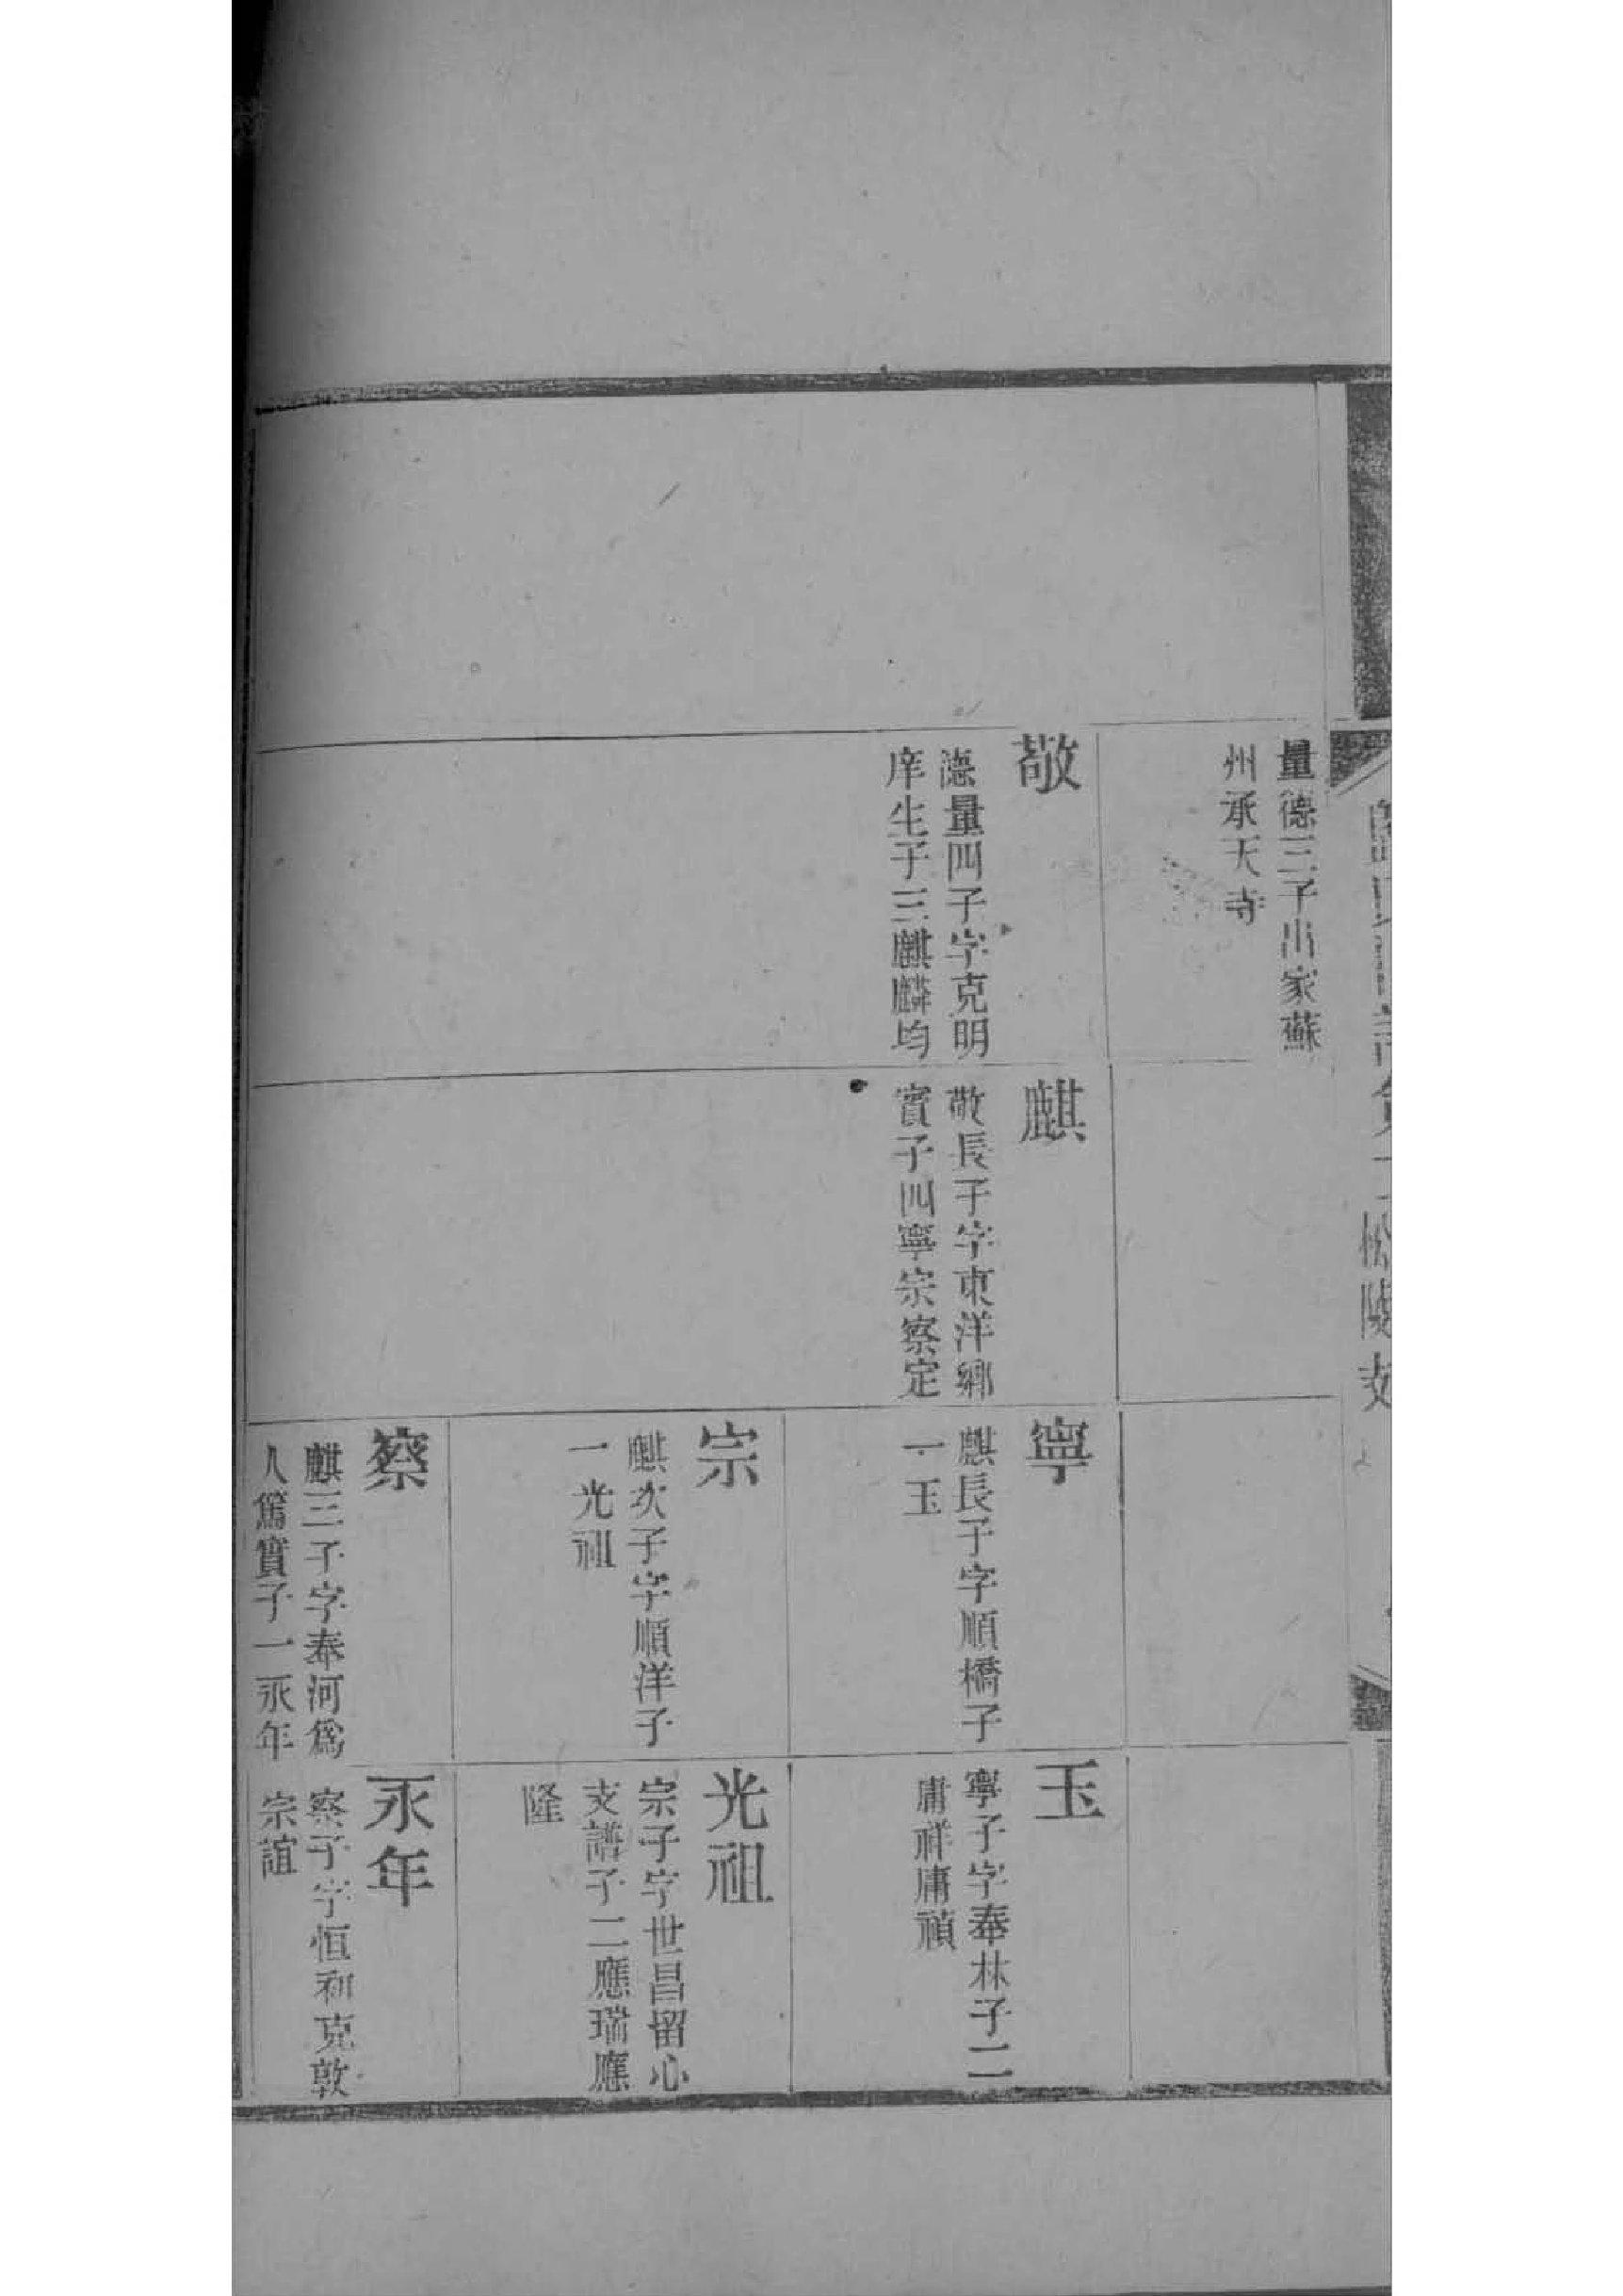 松陵支
量德三子出家蘇
州承天寺
敬
德量四子字克明
庠生子三麒麟均
麒
敬長子字東洋鄉
賓子四寧宗察定
寧
麒長子字順橋子
一玉
玉
寧子字奉林子二
庸祥庸禎
宗
麒次子字順洋子
一光祖
光祖
宗子字世昌留心
支譜子二應瑞應
隆
察
麒三子字奉河為
人篤實子一永年
永年
察子字恒和克敦
宗誼